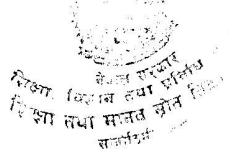 नेपाल सरकार
शिक्षा विज्ञान तथा प्रविधि
शिक्षा तथा मानव स्रोत
सानोठिमी